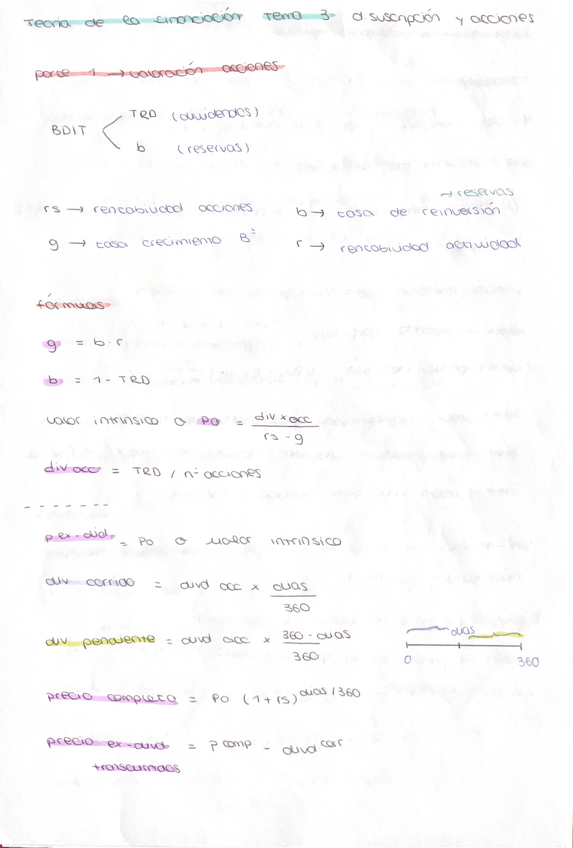 Teoria de la financiación Tema 3 d. suscripción y acciones
parte 1 → valoración acciones
TRD (dividendos)
BDIT
b (reservas)
→ reservas
rs → rentabilidad acciones b → tasa de reinversión
g → tasa crecimiento Bº r → rentabilidad actividad
fórmulas
g = b · r
b = 1 - TRD
valor intrinsico o Po = div x acc / rs - g
div acc = TRD / nº acciones
- - - - - - -
p ex-divid = Po o valor intrinsico
div corrido = divd acc x dias / 360
div pendiente = divd acc x 360 - dias / 360
dias
0 360
precio completo = Po (1 + rs) dias / 360
precio ex-divd = p comp - divd cor
transcurridos